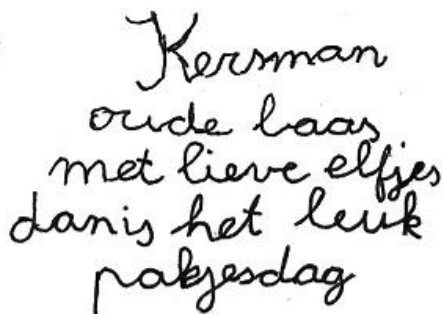 Kersman
oude baas
met lieve elfjes
danis het leuk
pakjesdag